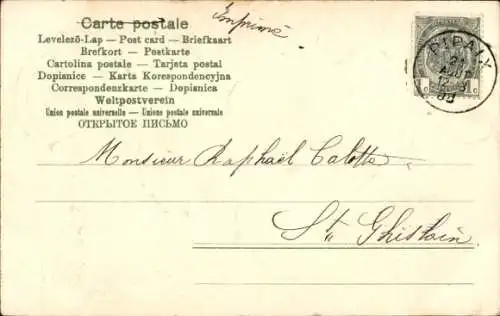 Carte postale
Imprimé
Levelező-Lap — Post card — Briefkaart
Brefkort — Postkarte
Cartolina postale — Tarjeta postal
Dopisnice — Karta Korespondencyjna
Correspondenzkarte — Dopisnica
Weltpostverein
Union postale universelle — Unione postale universale
ОТКРЫТОЕ ПИСЬМО
RIPAIX
21
AOUT
Monsieur Raphaël Calotte
St Ghislain